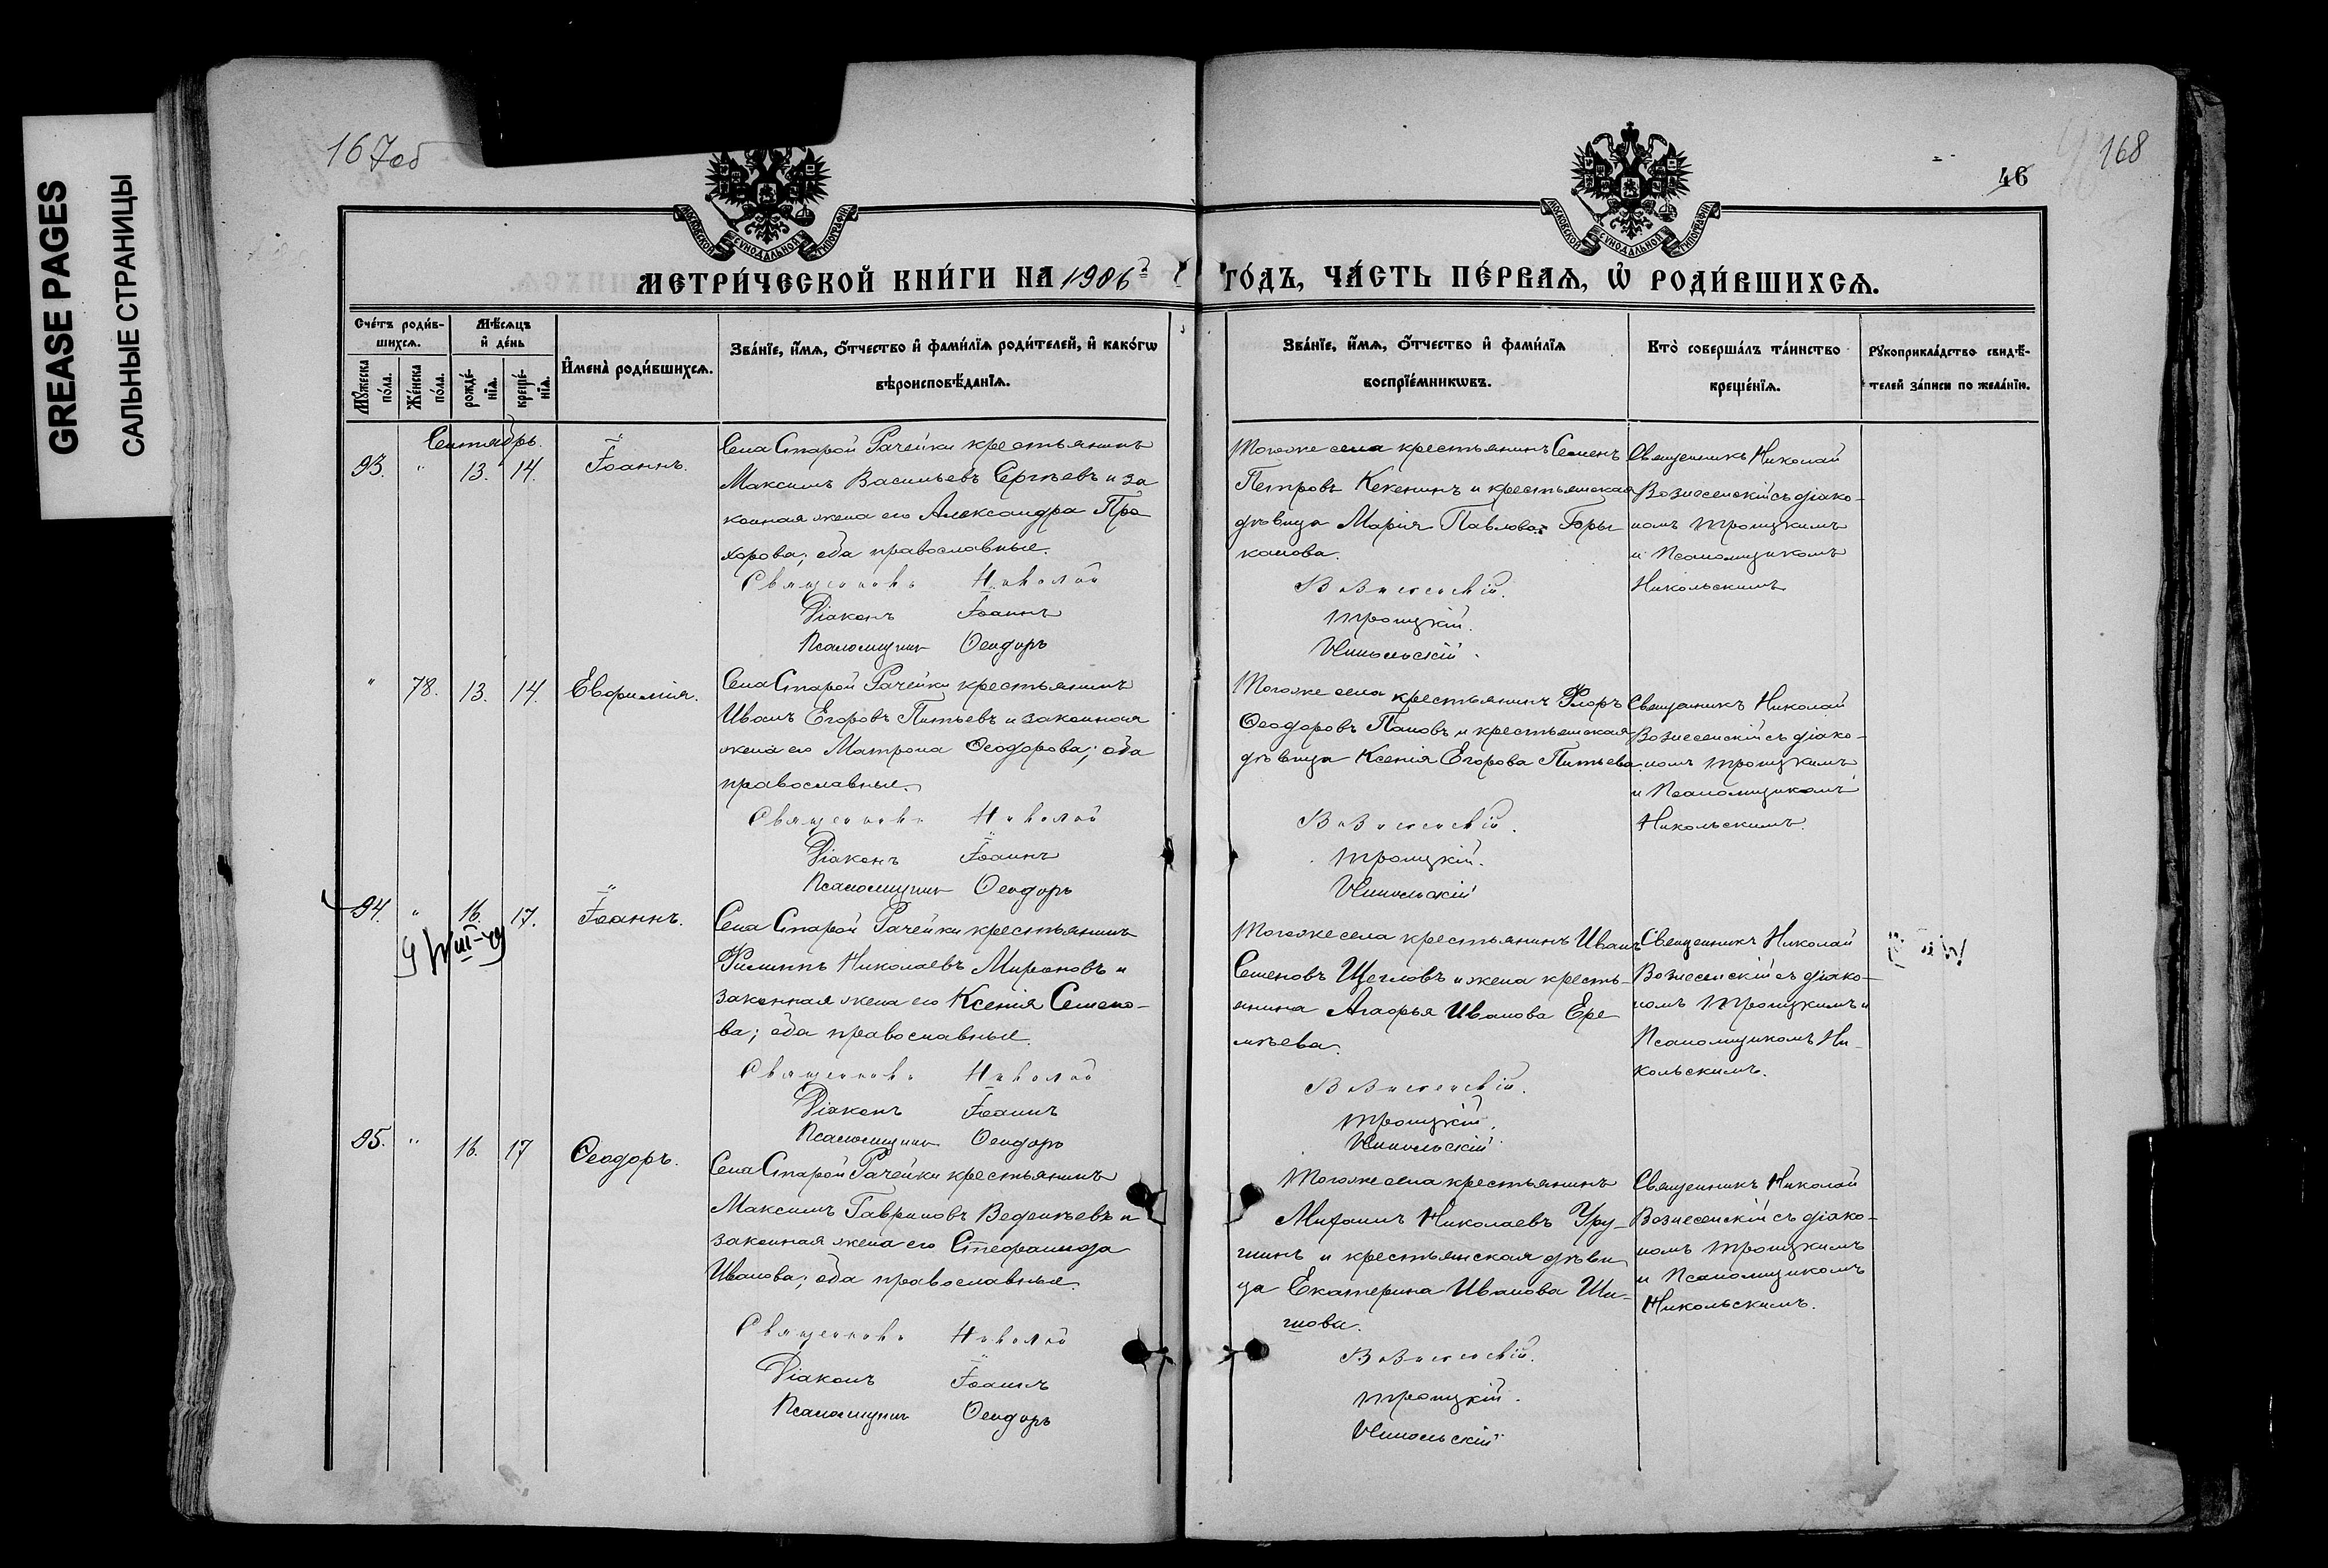 GREASE PAGES
САЛЬНЫЕ СТРАНИЦЫ
167об
168
46
МОСКОВСКОЙ СѴНОДАЛЬНОЙ ТИПОГРАФІИ
МОСКОВСКОЙ СѴНОДАЛЬНОЙ ТИПОГРАФІИ
МЕТРИ́ЧЕСКОЙ КНИ́ГИ НА 1906 г
ГО́ДЪ, ЧА́СТЬ ПЕ́РВАѦ, Ѡ҆ РОДИ́ВШИХСѦ.
Сче́тъ роди́в-
шихсѧ.
Мꙋ́жеска по́ла.
Же́нска по́ла.
Мѣ́сѧцъ
и҆ де́нь
рожде́-
нїѧ.
креще́-
нїѧ.
И҆мена̀ роди́вшихсѧ.
Зва́нїе, и҆́мѧ, ѻ҆́тчество и҆ фами́лїѧ роди́телей, и҆ како́гѡ
вѣроисповѣ́данїѧ.
Зва́нїе, и҆́мѧ, ѻ҆́тчество и҆ фами́лїѧ
воспрїе́мникѡвъ.
Кто̀ соверша́лъ та́инство
креще́нїѧ.
Рꙋкоприкла́дство свидѣ́-
телей за́писи по жела́нїю.
Сентябрь.
93. " 13. 14. Іоаннъ.
Села Старой Рачейки крестьянинъ
Максимъ Васильевъ Сергѣевъ и за
конная жена его Александра Про
хорова; оба православные.
Священникъ Николай
Діаконъ Іоаннъ
Псаломщикъ Ѳеодоръ
Тогоже села крестьянинъ Семенъ
Петровъ Кекенинъ и крестьянская
дѣвица Марія Павлова Горы
канова.
Вознесенскій.
Троицкій.
Никольскій.
Священникъ Николай
Вознесенскій съ діако-
номъ Троицкимъ
и Псаломщикомъ
Никольскимъ
" 78. 13. 14. Евфимія.
Села Старой Рачейки крестьянинъ
Иванъ Егоровъ Питьевъ и законная
жена его Матрона Ѳеодорова; оба
православные.
Священникъ Николай
Діаконъ Іоаннъ
Псаломщикъ Ѳеодоръ
Тогоже села крестьянинъ Флоръ
Ѳеодоровъ Пановъ и крестьянская
дѣвица Ксенія Егорова Питьева.
Вознесенскій.
Троицкій.
Никольскій
Священникъ Николай
Вознесенскій съ діако-
номъ Троицкимъ
и Псаломщикомъ
Никольскимъ.
94. " 16. 17. Іоаннъ.
Села Старой Рачейки крестьянинъ
Филиппъ Николаевъ Мироновъ и
законная жена его Ксенія Семено-
ва; оба православные.
Священникъ Николай
Діаконъ Іоаннъ
Псаломщикъ Ѳеодоръ
Тогоже села крестьянинъ Иванъ
Семеновъ Щегловъ и жена кресть-
янина Агафья Иванова Ере
мѣева.
Вознесенскій.
Троицкій.
Никольскій
Священникъ Николай
Вознесенскій съ діако-
номъ Троицкимъ и
Псаломщикомъ Ни-
кольскимъ.
95. " 16. 17 Ѳеодоръ.
Села Старой Рачейки крестьянинъ
Максимъ Гавриловъ Веденѣевъ и
законная жена его Стефанида
Иванова; оба православные.
Священникъ Николай
Діаконъ Іоаннъ
Псаломщикъ Ѳеодоръ
Тогоже села крестьянинъ
Михаилъ Николаевъ Уру-
шинъ и крестьянская дѣви
ца Екатерина Иванова Ши-
шова.
Вознесенскій.
Троицкій.
Никольскій
Священникъ Николай
Вознесенскій съ діако-
номъ Троицкимъ
и Псаломщикомъ
Никольскимъ.